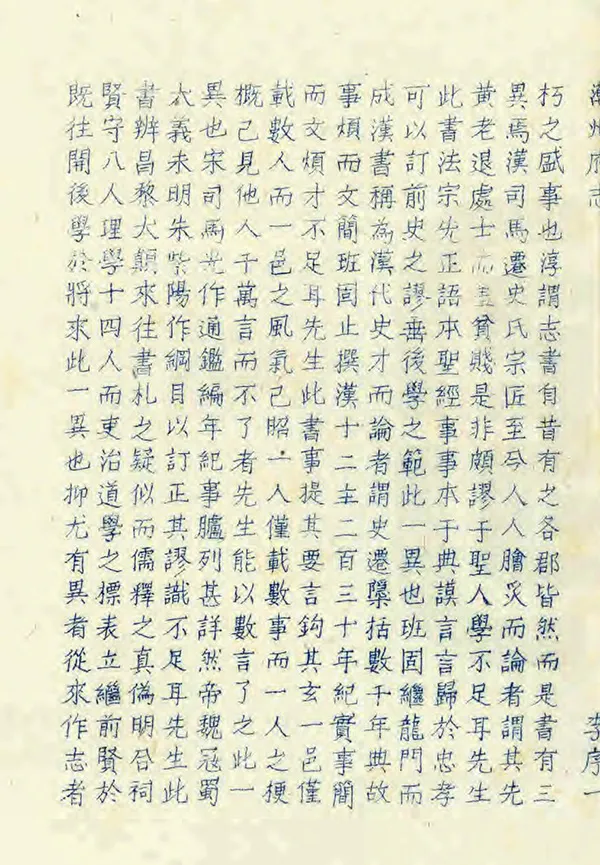 潮州府志 李序一
朽之盛事也淳謂志書自昔有之各郡皆然而是書有三
異焉漢司馬遷史氏宗匠至今人人膾炙而論者謂其先
黃老退處士而羞貧賤是非頗謬于聖人學不足耳先生
此書法宗先正語本聖經事事本于典謨言言歸於忠孝
可以訂前史之謬垂後學之範此一異也班固繼龍門而
成漢書稱為漢代史才而論者謂史遷檃括數千年典故
事煩而文簡班固止撰漢十二主二百三十年紀實事簡
而文煩才不足耳先生此書事提其要言鈎其玄一邑僅
載數人而一邑之風氣已昭一人僅載數事而一人之梗
概已見他人千萬言而不了者先生能以數言了之此一
異也宋司馬光作通鑑編年紀事臚列甚詳然帝魏冠蜀
大義未明朱紫陽作綱目以訂正其謬識不足耳先生此
書辨昌黎大顛來往書札之疑似而儒釋之真偽明合祠
賢守八人理學十四人而吏治道學之標表立繼前賢於
既往開後學於將來此一異也抑尤有異者從來作志者